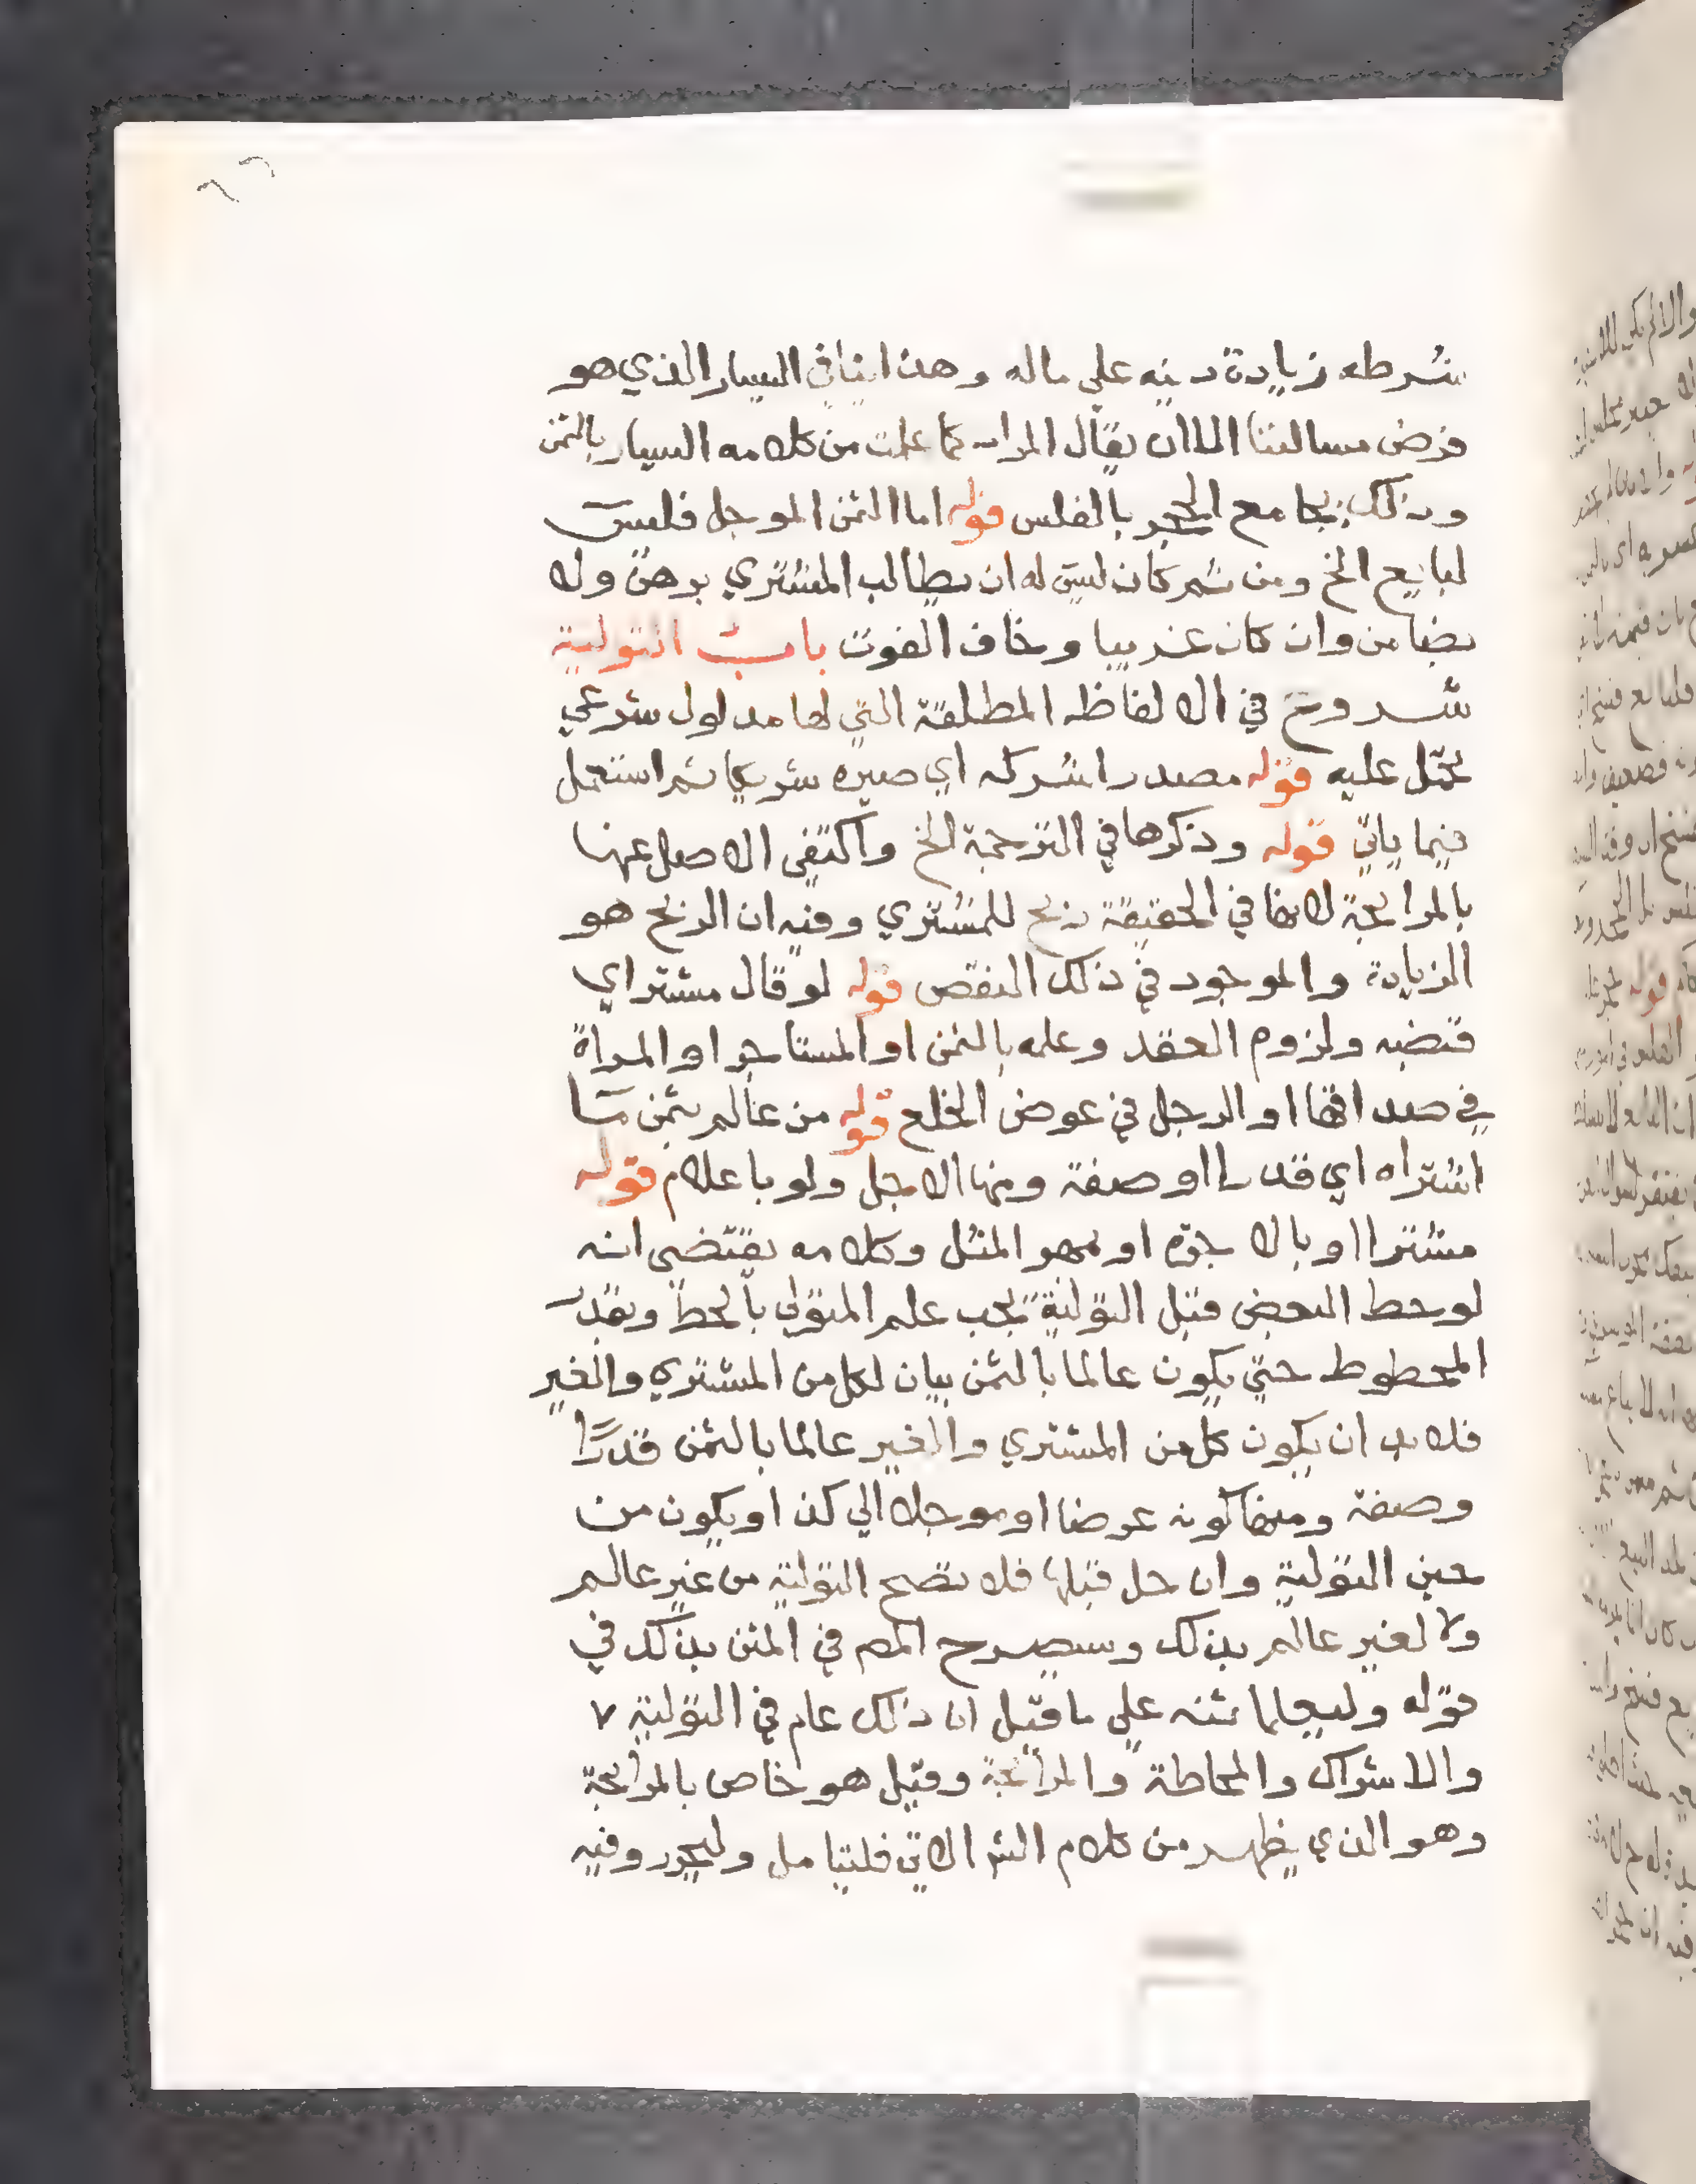 شرطه زيادة دينه علي ماله وهذا ينافي اليسار الذي هو
فرض مسالتنا الا ان يقال المراد كما علمت من كلامه اليسار بالثمن
وذلك يجامع الحجر بالفلس قوله اما الثمن الموجل فليس
لبايع الخ ومن ثم كان ليس له ان يطالب المشتري برهن ولا
بضامن وان كان غريبا وخاف الفوت باب التولية
شروع في الالفاظ المطلقة التي لها مدلول شرعي
تحمل عليه قوله مصدر اشركه اي صيره شريكا ثم استعمل
فيما ياتي قوله وذكرها في الترجمة الخ واكتفي الاصل عنها
بالمرابحة لانها في الحقيقة ربح للمشتري وفيه ان الربح هو
الزيادة والموجود في ذلك النقص قوله لو قال مشتر اي
قبضه ولزوم العقد وعلمه بالثمن او المستاجر او المراة
في صداقها او الرجل في عوض الخلع قوله من عالم بثمن ما
اشتراه اي قدرا او صفة ومنها الاجل ولو باعلام قوله
مشترا او بالاجرة او بمهر المثل وكلامه يقتضي انه
لو حط البعض قبل التولية يجب علم المتولي بالحط وبقدر
المحطوط حتي يكون عالما بالثمن بيان لكل من المشتري والغير
فلا بد ان يكون كل من المشتري والغير عالما بالثمن قدرا
وصفة ومنها كونه عرضا او موجلا الي كذا او يكون من
حين التولية وان حل قبلها فلا تصح التولية من غير عالم
ولا لغير عالم بذلك وسيصرح المص في المتن بذلك في
قوله وليعلما ثمنه علي ما قيل ان ذلك عام في التولية ٧
والاشراك والمحاطة والمرابحة وقيل هو خاص بالمرابحة
وهو الذي يظهر من كلام الش الاتي فليتامل وليحرر وفيه